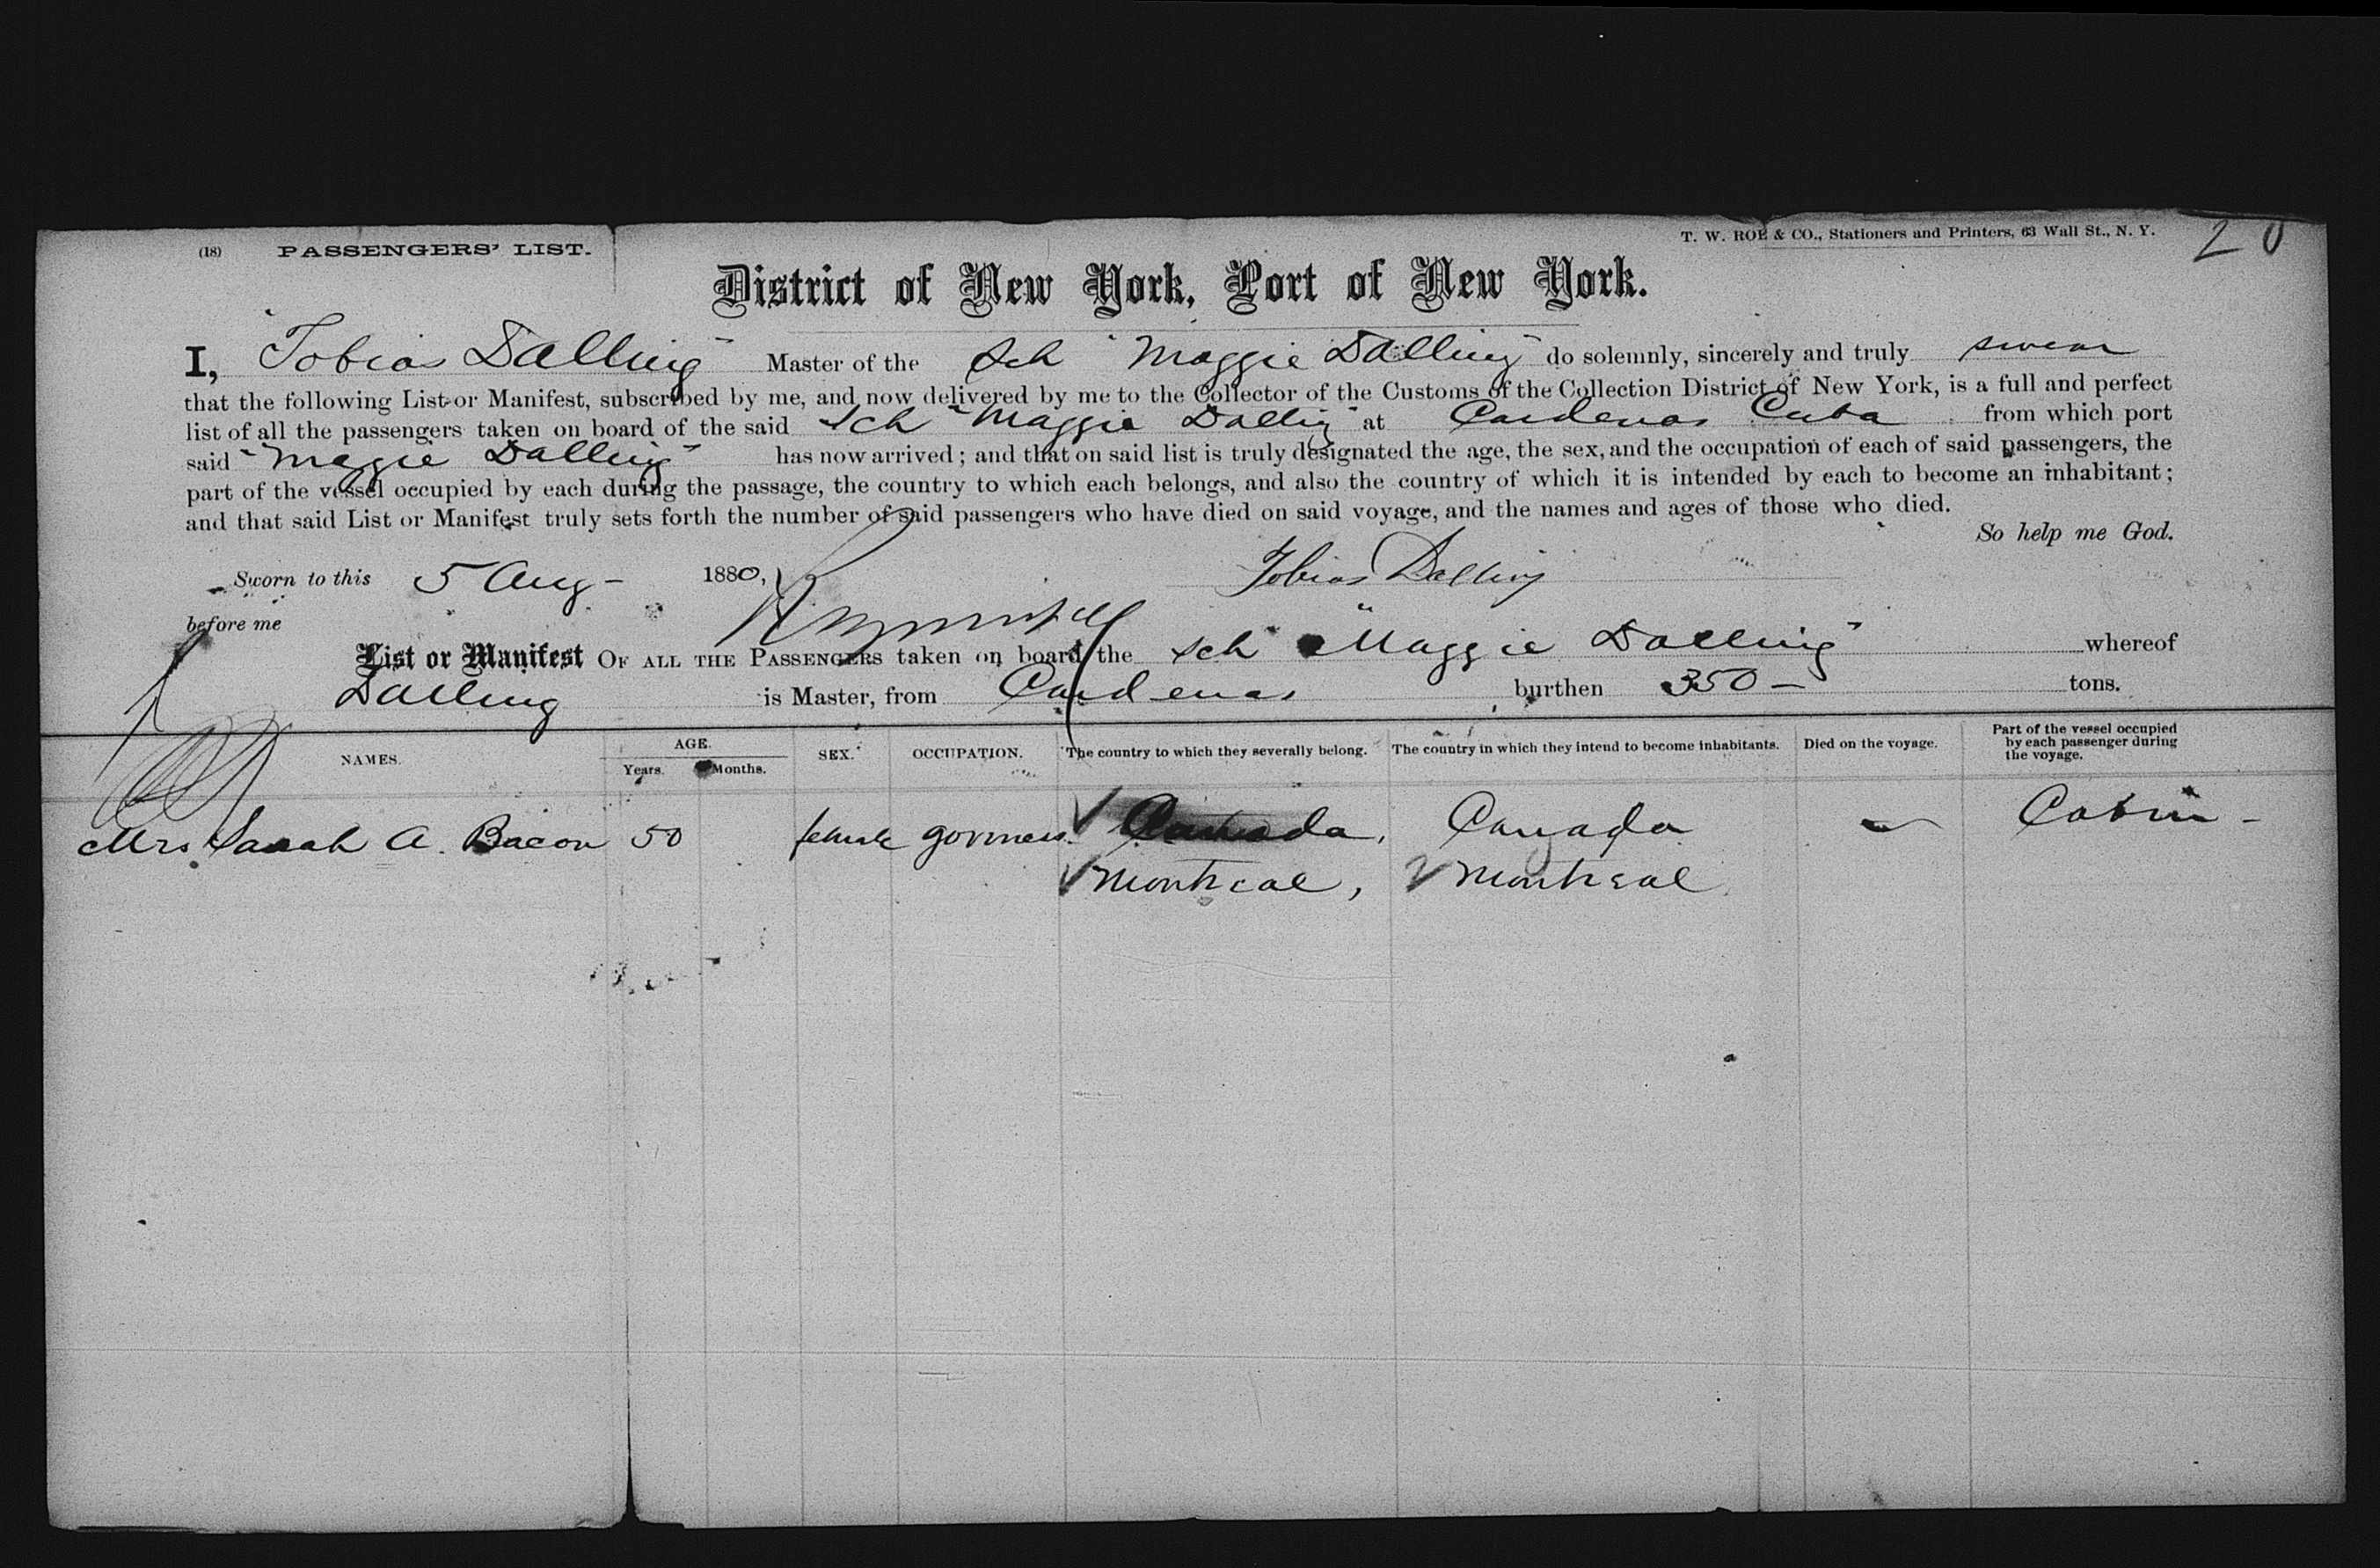 (18) PASSENGERS' LIST. T. W. ROE & CO., Stationers and Printers, 63 Wall St., N. Y. 20
District of New York, Port of New York.
I, Tobias Dalling Master of the Sch "Maggie Dalling" do solemnly, sincerely and truly swear
that the following List or Manifest, subscribed by me, and now delivered by me to the Collector of the Customs of the Collection District of New York, is a full and perfect
list of all the passengers taken on board of the said Sch "Maggie Dallig" at Cardenas Cuba from which port
said "Maggie Dalling" has now arrived; and that on said list is truly designated the age, the sex, and the occupation of each of said passengers, the
part of the vessel occupied by each during the passage, the country to which each belongs, and also the country of which it is intended by each to become an inhabitant;
and that said List or Manifest truly sets forth the number of said passengers who have died on said voyage, and the names and ages of those who died.
So help me God.
Sworn to this 5 Aug - 1880, Tobias Dalling
before me
List or Manifest OF ALL THE PASSENGERS taken on board the Sch "Maggie Dalling" whereof
Dalling is Master, from Cardenas burthen 350 — tons.
NAMES. AGE. Years. Months. SEX. OCCUPATION. The country to which they severally belong. The country in which they intend to become inhabitants. Died on the voyage. Part of the vessel occupied by each passenger during the voyage.
Mrs Sarah A. Bacon 50 female governess. Canada, Canada — Cabin -
Montreal, Montreal